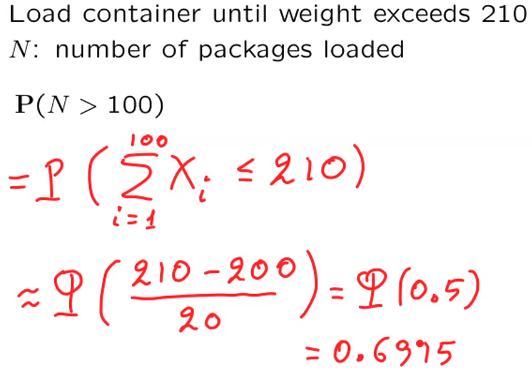 Load container until weight exceeds 210
N: number of packages loaded
P(N > 100)
= P ( ∑_{i=1}^{100} X_i ≤ 210 )
≈ Φ ( (210 - 200) / 20 ) = Φ (0.5)
= 0.6995